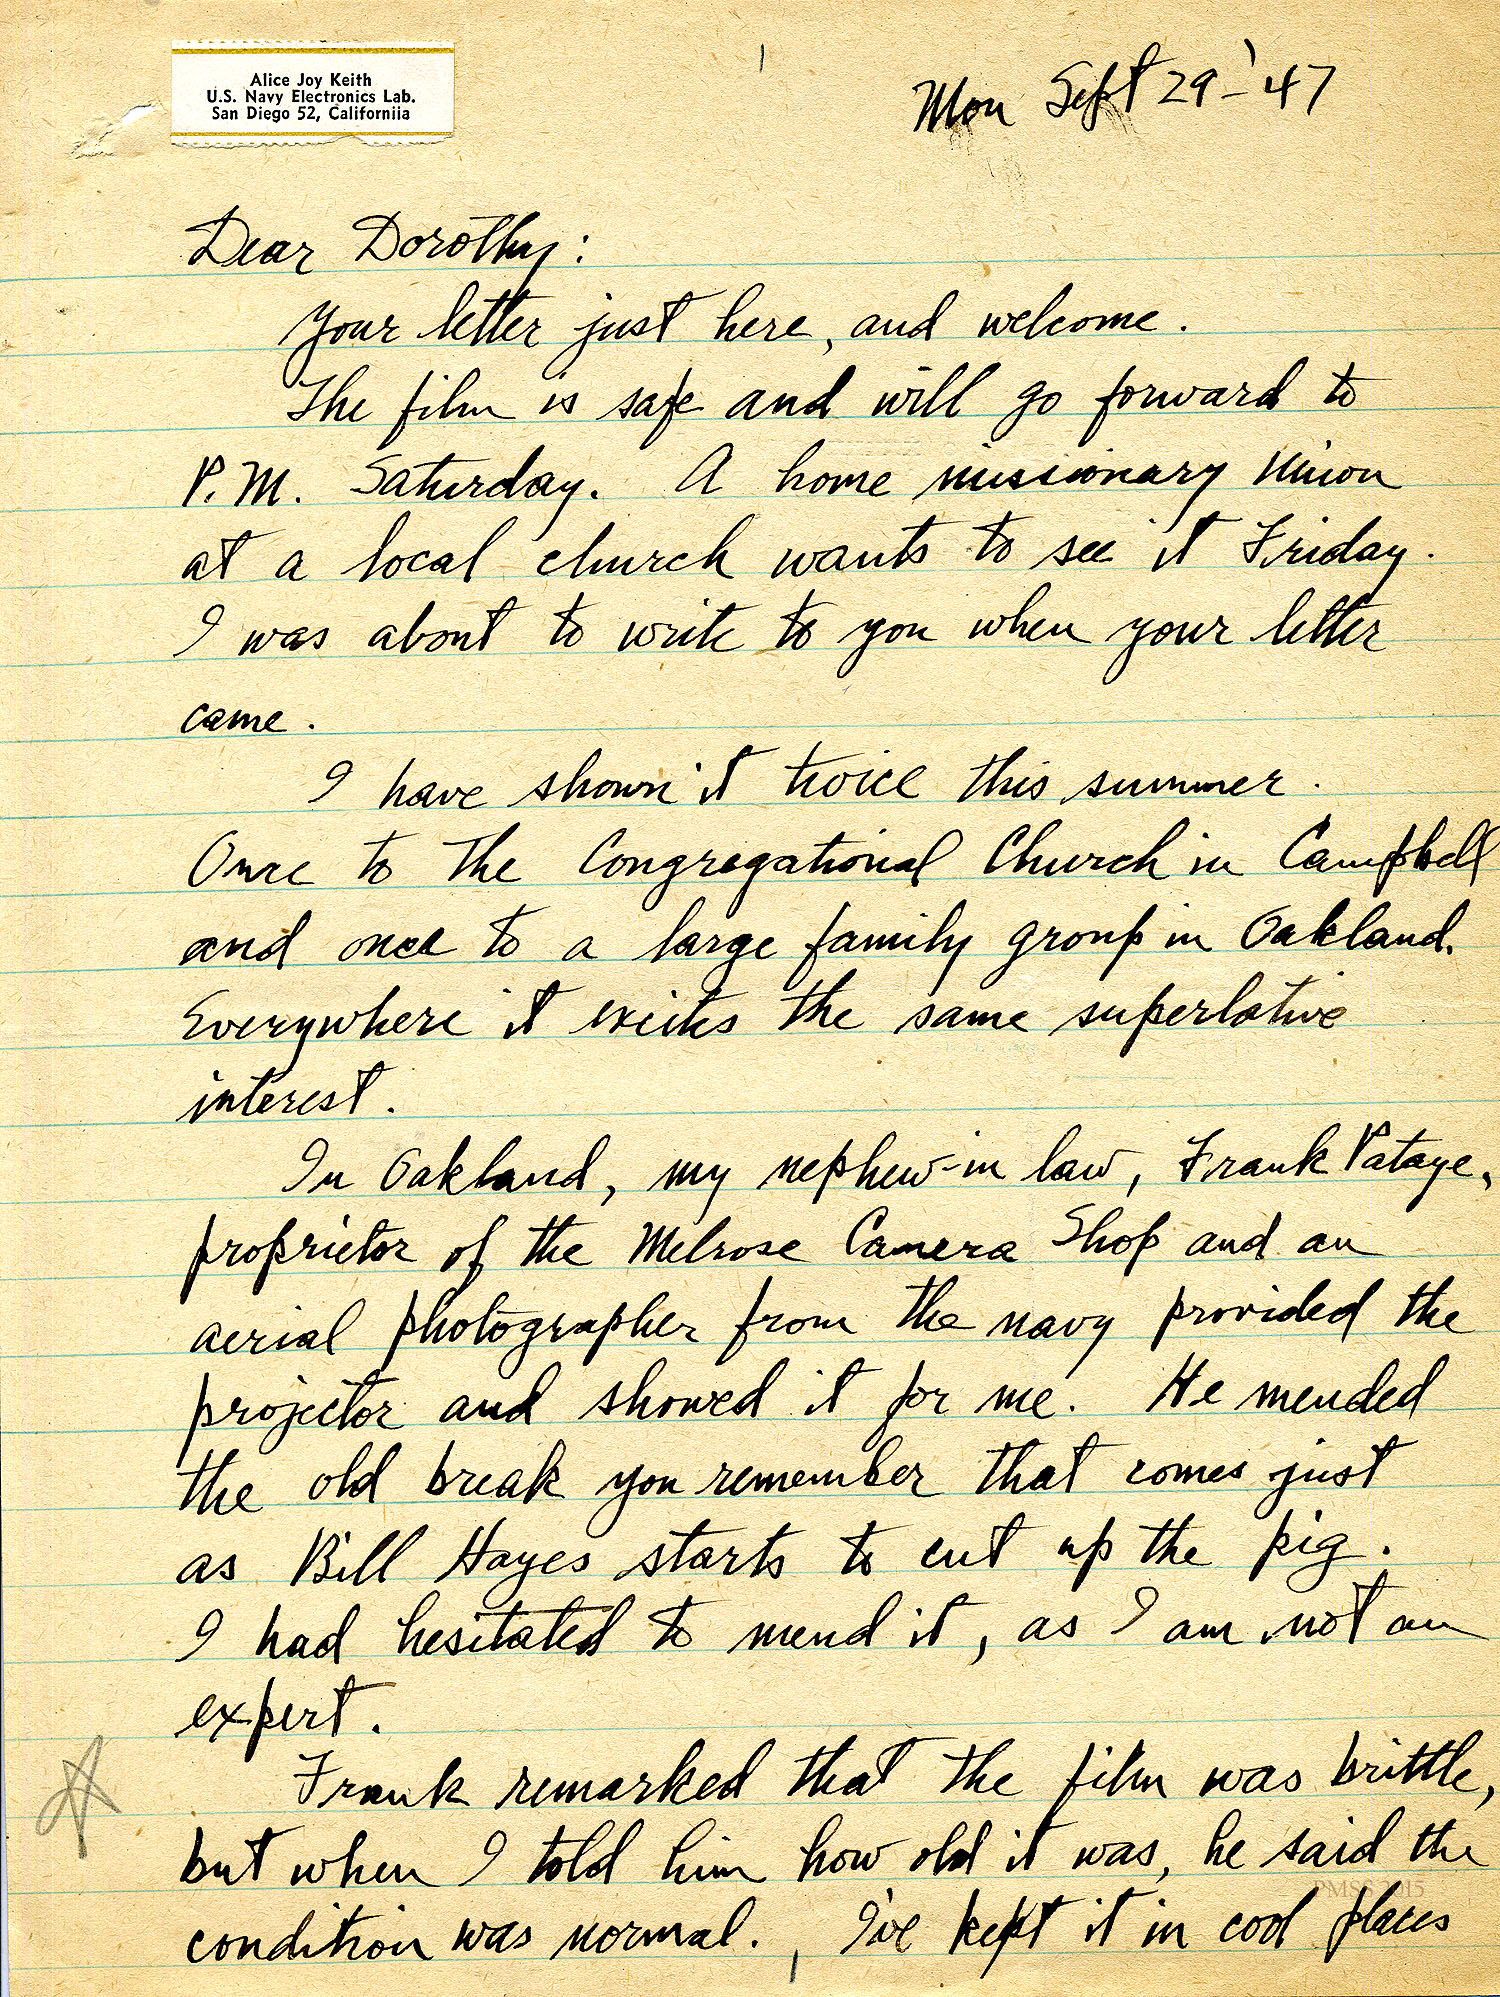 Alice Joy Keith
U.S. Navy Electronics Lab.
San Diego 52, Californiia
Mon Sept 29 - '47
Dear Dorothy:
Your letter just here, and welcome.
The film is safe and will go forward to
P.M. Saturday. A home missionary Union
at a local church wants to see it Friday.
I was about to write to you when your letter
came.
I have shown it twice this summer.
Once to the Congregational Church in Campbell
and once to a large family group in Oakland.
Everywhere it excites the same superlative
interest.
In Oakland, my nephew-in law, Frank Pataye,
proprietor of the Melrose Camera Shop and an
aerial photographer from the navy provided the
projector and showed it for me. He mended
the old break you remember that comes just
as Bill Hayes starts to cut up the pig.
I had hesitated to mend it, as I am not an
expert.
Frank remarked that the film was brittle,
but when I told him how old it was, he said the
PMSS 2015
condition was normal. I've kept it in cool places